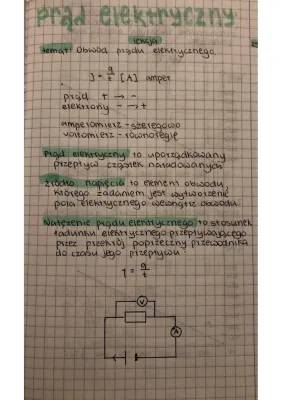 prąd elektryczny
lekcja
temat: Obwód prądu elektrycznego.
J = q/t [A] amper
prąd + → -
elektrony - → +
amperomierz - szeregowo
voltomierz - równolegle
Prąd elektryczny to uporządkowany
przepływ cząstek naładowanych
Źródło napięcia to element obwodu
którego zadaniem jest wytworzenie
pola elektrycznego wewnątrz obwodu.
Natężenie prądu elektrycznego to stosunek
ładunku elektrycznego przepływającego
przez przekrój poprzeczny przewodnika
do czasu jego przepływu.
I = q/t
V
A